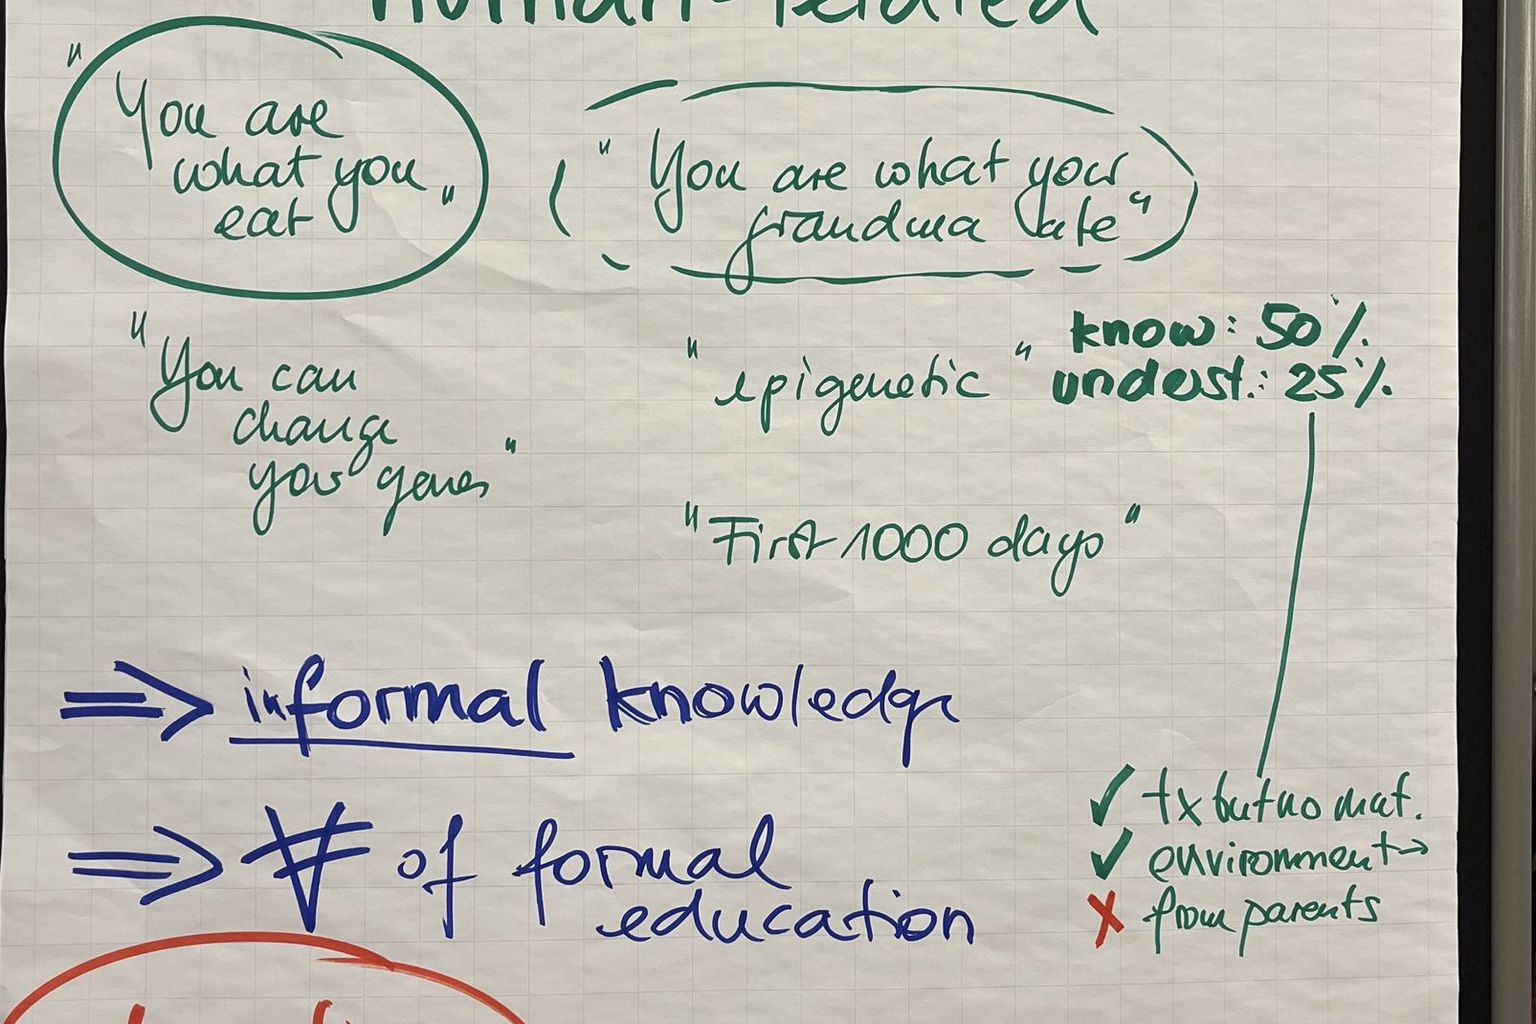 Human-related
"You are
what you
eat"
"You are what your
grandma ate"
"You can
change
your genes"
"epigenetic"
know: 50%
underst.: 25%
"First 1000 days"
⇒ informal knowledge
⇒ of formal
education
✓ tx but no mut.
✓ environment →
✗ from parents